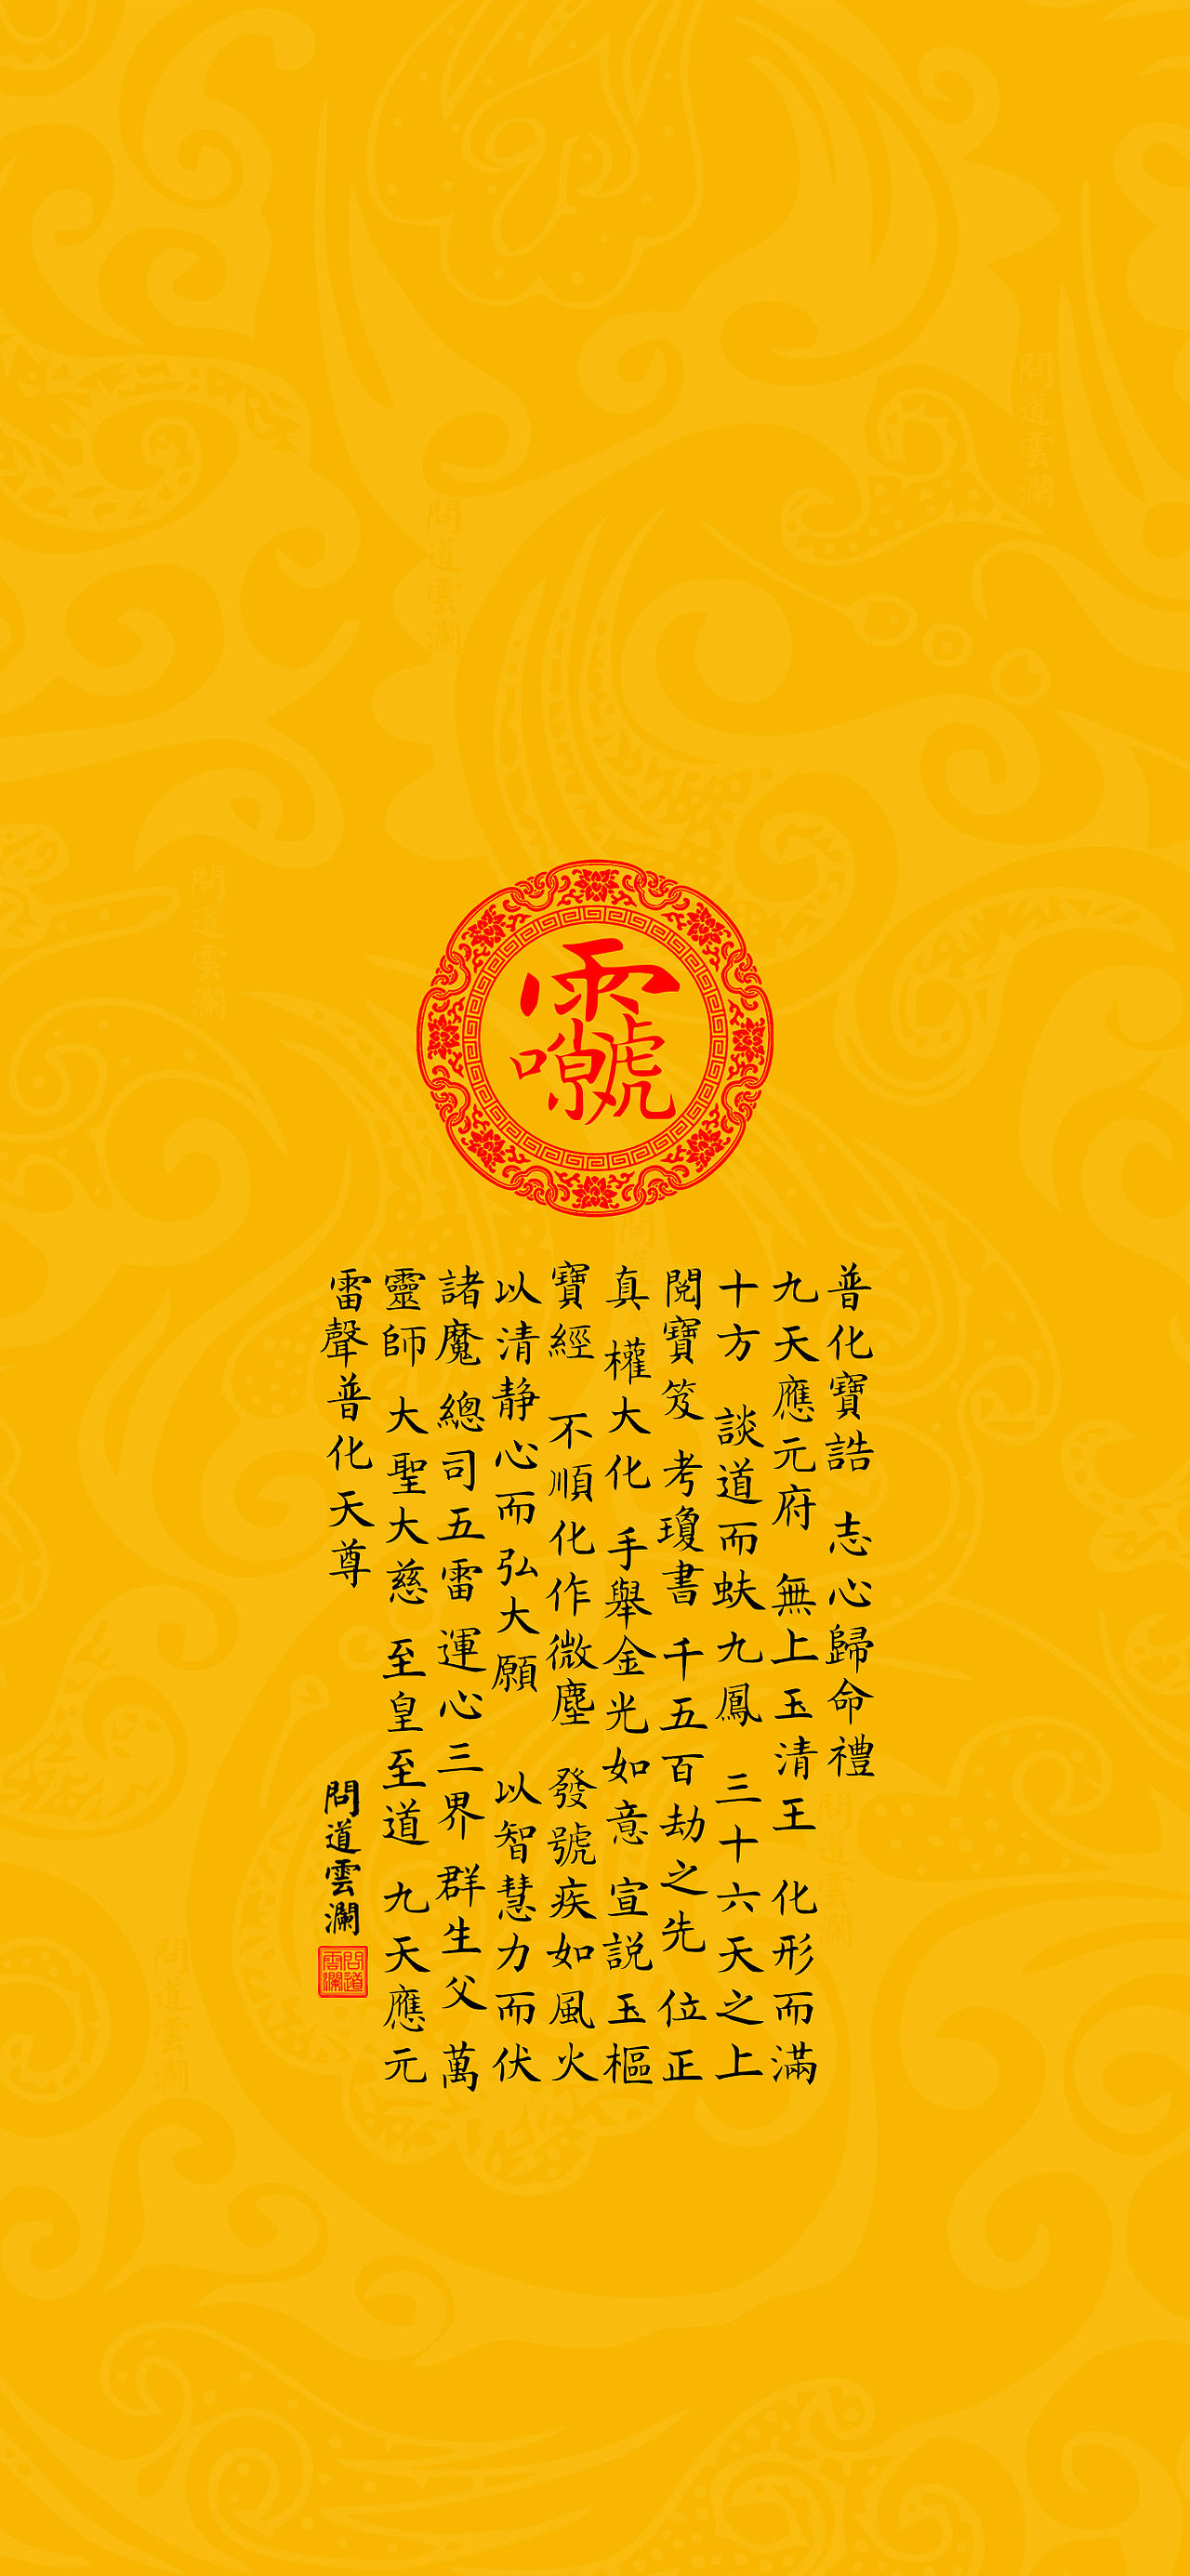 普化寶誥 志心歸命禮
九天應元府 無上玉清王 化形而滿
十方 談道而蚨九鳳 三十六天之上
閱寶笈 考瓊書 千五百劫之先 位正
真 權大化 手舉金光如意 宣説玉樞
寶經 不順化作微塵 發號疾如風火
以清静心而弘大願 以智慧力而伏
諸魔 總司五雷 運心三界 群生父 萬
靈師 大聖大慈 至皇至道 九天應元
雷聲普化天尊
問道雲瀾
問道雲瀾
問道雲瀾
問道雲瀾
問道雲瀾
問道雲瀾